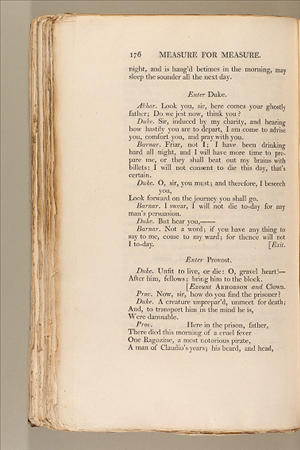 176 MEASURE FOR MEASURE.
night, and is hang'd betimes in the morning, may
sleep the sounder all the next day.
Enter Duke.
Abhor. Look you, sir, here comes your ghostly
father; Do we jest now, think you?
Duke. Sir, induced by my charity, and hearing
how hastily you are to depart, I am come to advise
you, comfort you, and pray with you.
Barnar. Friar, not I; I have been drinking
hard all night, and I will have more time to pre-
pare me, or they shall beat out my brains with
billets: I will not consent to die this day, that's
certain.
Duke. O, sir, you must; and therefore, I beseech
you,
Look forward on the journey you shall go.
Barnar. I swear, I will not die to-day for any
man's persuasion.
Duke. But hear you,——
Barnar. Not a word; if you have any thing to
say to me, come to my ward; for thence will not
I to-day. [Exit.
Enter Provost.
Duke. Unfit to live, or die: O, gravel heart!—
After him, fellows; bring him to the block.
[Exeunt ABHORSON and Clown.
Prov. Now, sir, how do you find the prisoner?
Duke. A creature unprepar'd, unmeet for death;
And, to transport him in the mind he is,
Were damnable.
Prov. Here in the prison, father,
There died this morning of a cruel fever
One Ragozine, a most notorious pirate,
A man of Claudio's years; his beard, and head,